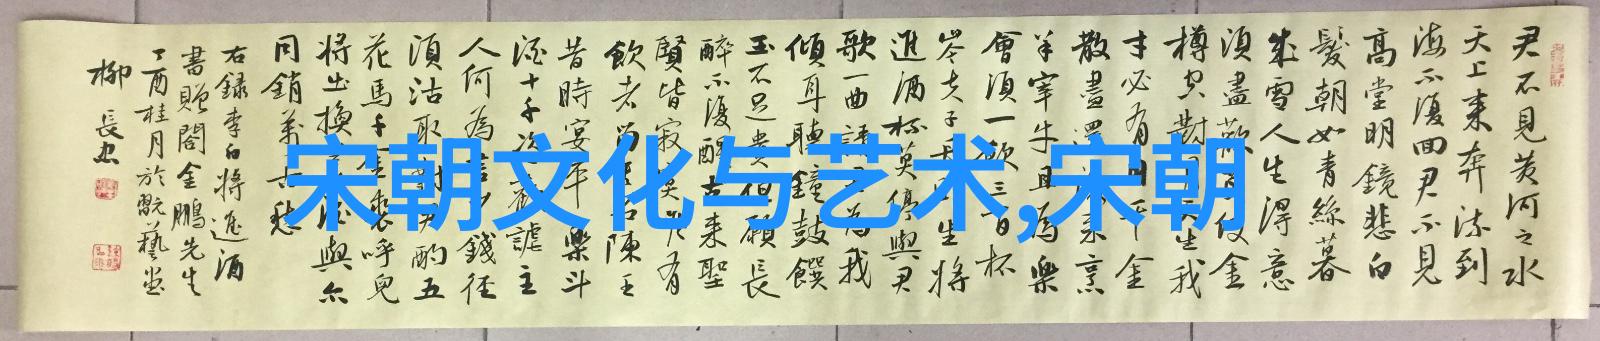 君不見黃河之水
天上来奔流到
海不復回君不見
高堂明鏡悲白
髮朝如青絲暮
成雪人生得意
須盡歡使金
樽空對月天生我
才必有用千金
散盡還復来烹
羊宰牛且為樂
會須一飲三百杯
岑夫子丹丘生將
進酒杯莫停與君
歌一曲請君為我
傾耳聽鐘鼓饌
玉不足貴但願長
醉不復醒古来聖
賢皆寂寞惟有
飲者留其名陳王
昔時宴平樂斗
酒十千恣歡謔主
人何為言少錢径
須沽取對君酌五
花馬千金裘呼兒
將出換美酒與尔
同銷萬古愁
右錄李白將進酒
書贈閤金鵬先生
丁酉桂月於皖藝堂
柳長忠
宋朝文化与艺术,宋朝